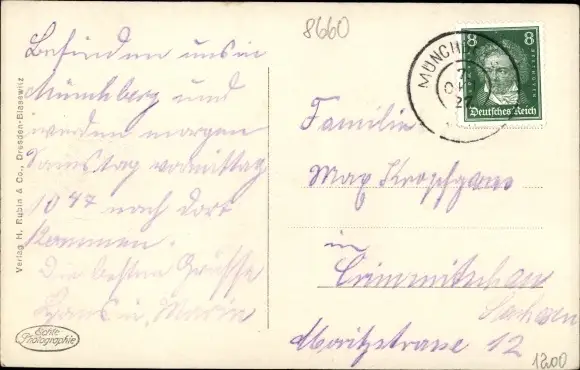 8660
Befinden uns in
Münchberg und
werden morgen
Samstag vormittag
10 47 nach dort
kommen.
Die besten Grüsse
Hans u. Maria
Familie
Max Kropfgans
in
Crimmitschau
Sachsen
Moritzstrasse 12
1200
MÜNCH
7
OK
27
8 8
BEETHOVEN
Deutsches Reich
Verlag H. Rubin & Co., Dresden-Blasewitz
Echte
Photographie